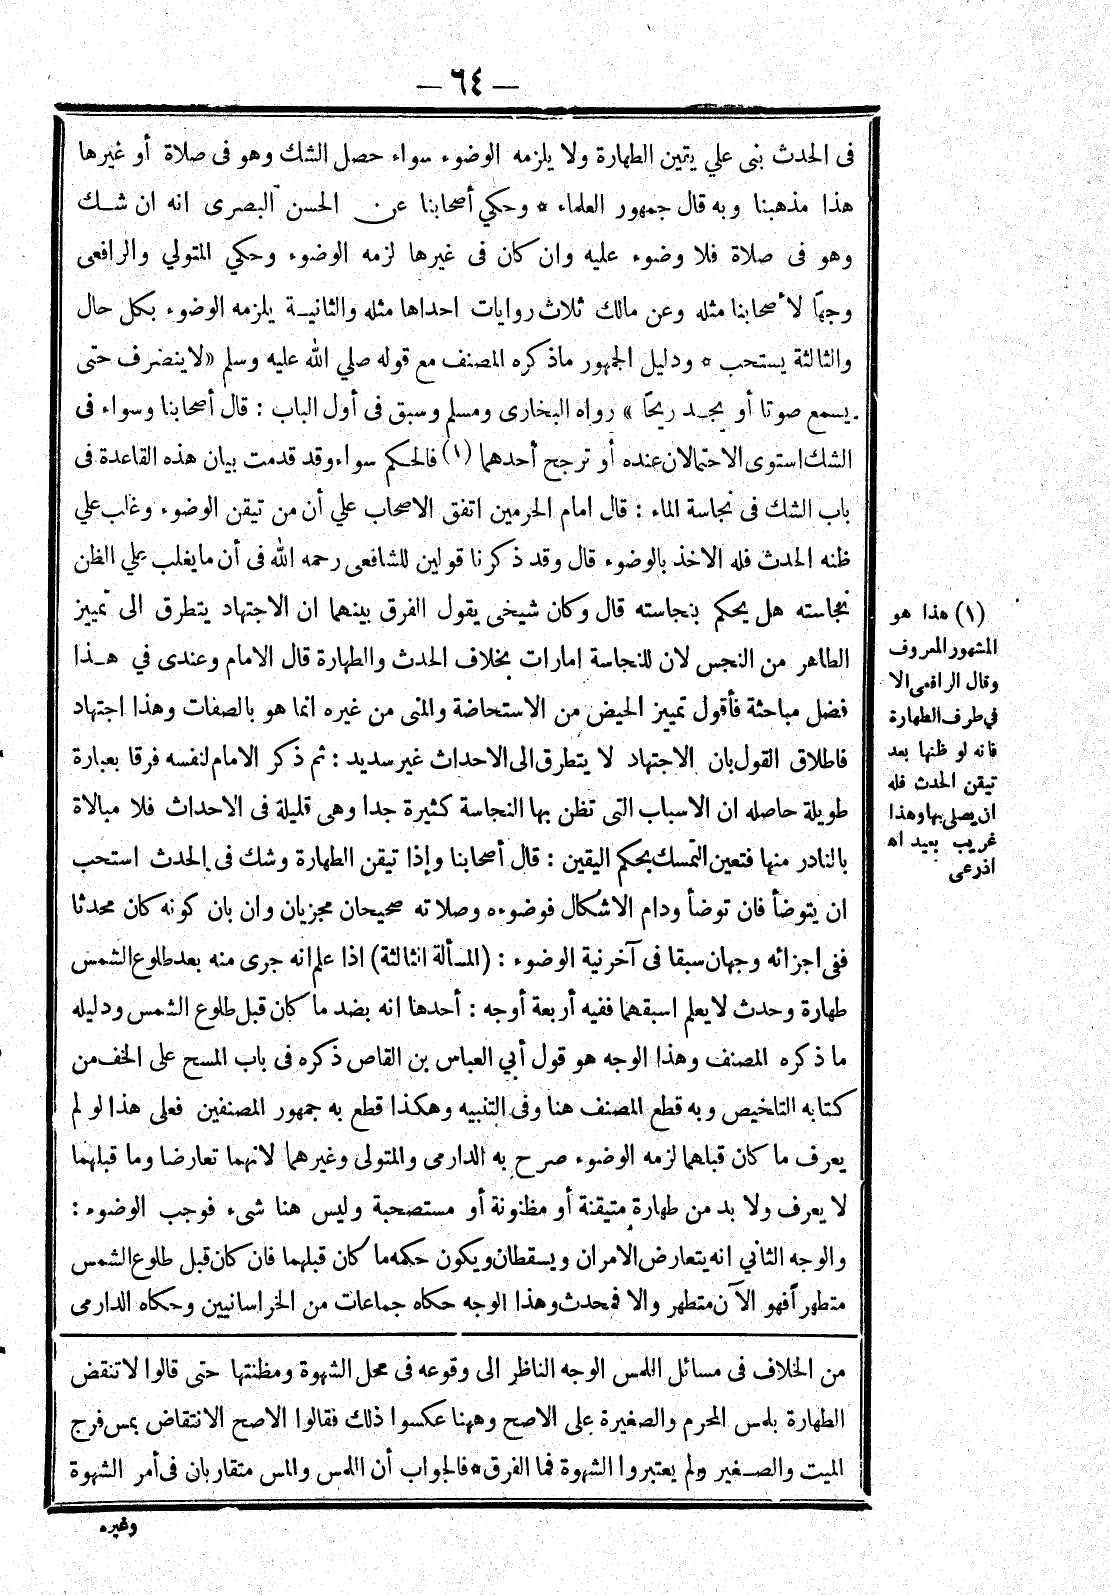 — ٦٤ —
فى الحدث بنى علي يقين الطهارة ولا يلزمه الوضوء سواء حصل الشك وهو فى صلاة أو غيرها
هذا مذهبنا وبه قال جمهور العلماء * وحكي أصحابنا عن الحسن البصرى انه ان شك
وهو فى صلاة فلا وضوء عليه وان كان فى غيرها لزمه الوضوء وحكي المتولي والرافعى
وجهًا لأصحابنا مثله وعن مالك ثلاث روايات احداها مثله والثانية يلزمه الوضوء بكل حال
والثالثة يستحب * ودليل الجمهور ماذكره المصنف مع قوله صلي الله عليه وسلم «لاينصرف حتى
يسمع صوتا أو يجد ريحًا» رواه البخارى ومسلم وسبق فى أول الباب : قال أصحابنا وسواء فى
الشك استوى الاحتمالان عنده أو ترجح أحدهما (١) فالحكم سواء وقد قدمت بيان هذه القاعدة فى
باب الشك فى نجاسة الماء : قال امام الحرمين اتفق الاصحاب علي أن من تيقن الوضوء وغلب علي
ظنه الحدث فله الاخذ بالوضوء قال وقد ذكرنا قولين للشافعى رحمه الله فى أن مايغلب علي الظن
نجاسته هل يحكم بنجاسته قال وكان شيخى يقول الفرق بينهما ان الاجتهاد يتطرق الى تمييز
الطاهر من النجس لان للنجاسة امارات بخلاف الحدث والطهارة قال الامام وعندى في هذا
فضل مباحثة فأقول تمييز الحيض من الاستحاضة والمنى من غيره انما هو بالصفات وهذا اجتهاد
فاطلاق القول بان الاجتهاد لا يتطرق الى الاحداث غير سديد : ثم ذكر الامام لنفسه فرقا بعبارة
طويلة حاصله ان الاسباب التى تظن بها النجاسة كثيرة جدا وهى قليلة فى الاحداث فلا مبالاة
بالنادر منها فتعين التمسك بحكم اليقين : قال أصحابنا وإذا تيقن الطهارة وشك فى الحدث استحب
ان يتوضأ فان توضأ ودام الاشكال فوضوءه وصلاته صحيحان مجزيان وان بان كونه كان محدثا
ففى اجزائه وجهان سبقا فى آخر نية الوضوء : (المسألة الثالثة) اذا علم انه جرى منه بعد طلوع الشمس
طهارة وحدث لا يعلم اسبقهما ففيه أربعة أوجه : أحدها انه بضد ما كان قبل طلوع الشمس ودليله
ما ذكره المصنف وهذا الوجه هو قول أبي العباس بن القاص ذكره فى باب المسح على الخف من
كتابه التلخيص وبه قطع المصنف هنا وفى التنبيه وهكذا قطع به جمهور المصنفين فعلى هذا لو لم
يعرف ما كان قبلهما لزمه الوضوء صرح به الدارمى والمتولى وغيرهما لانهما تعارضا وما قبلهما
لا يعرف ولا بد من طهارة متيقنة أو مظنونة أو مستصحبة وليس هنا شىء فوجب الوضوء :
والوجه الثاني انه يتعارض الامران ويسقطان ويكون حكمه ما كان قبلهما فان كان قبل طلوع الشمس
متطهرا فهو الآن متطهر والا فمحدث وهذا الوجه حكاه جماعات من الخراسانيين وحكاه الدارمى
(١) هذا هو
المشهور المعروف
وقال الرافعى الا
في طرف الطهارة
فانه لو ظنها بعد
تيقن الحدث فله
ان يصلى بها وهذا
غريب بعيد اه
اذرعى
من الخلاف فى مسائل اللمس الوجه الناظر الى وقوعه فى محل الشهوة ومظنتها حتى قالوا لا تنقض
الطهارة بلمس المحرم والصغيرة على الاصح وههنا عكسوا ذلك فقالوا الاصح الانتقاض بمس فرج
الميت والصغير ولم يعتبروا الشهوة فما الفرق * فالجواب أن اللمس والمس متقاربان فى أمر الشهوة
وغيره